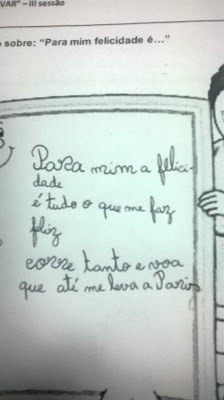 VAR" – III sessão
sobre: "Para mim felicidade é..."
Para mim a felici-
dade
é tudo o que me faz
fliz
corre tanto e voa
que até me leva a Paris